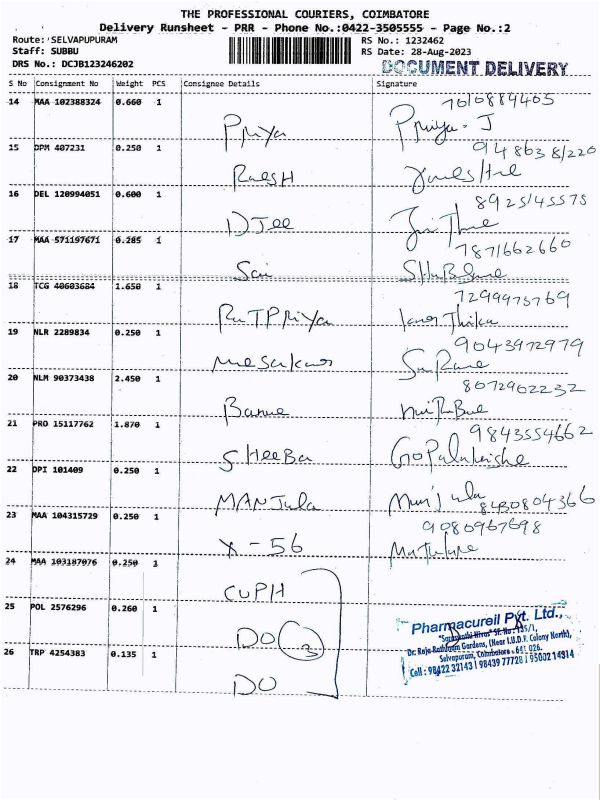 THE PROFESSIONAL COURIERS, COIMBATORE
Delivery Runsheet - PRR - Phone No.:0422-3505555 - Page No.:2
Route: SELVAPUPURAM RS No.: 1232462
Staff: SUBBU RS Date: 28-Aug-2023
DRS No.: DCJB123246202 DOCUMENT DELIVERY
S No Consignment No Weight PCS Consignee Details Signature
14 MAA 102388324 0.660 1 7010884405
Priya Priya. J
15 DPM 407231 0.250 1
16 DEL 120994051 0.600 1 8925145575
17 MAA 571197671 0.285 1 7871662660
Sai
18 TCG 40603684 1.650 1 7299975769
19 NLR 2289834 0.250 1 9043972979
20 NLM 90373438 2.450 1 8072902232
21 PRO 15117762 1.870 1 9843554662
SHeeBa
22 DPI 101409 0.250 1
MANJula 8430804366
23 MAA 104315729 0.250 1 9080967698
X - 56
24 MAA 103187076 0.250 1
CUPH
25 POL 2576296 0.260 1
DO 3
26 TRP 4254383 0.135 1
DO
Pharmacureil Pvt. Ltd.,
Dr. Raja Rathinam Gardens, (Near I.U.D.F. Colony North),
Selvapuram, Coimbatore - 641 026.
Cell : 98422 32143 | 98439 77728 | 95002 14314